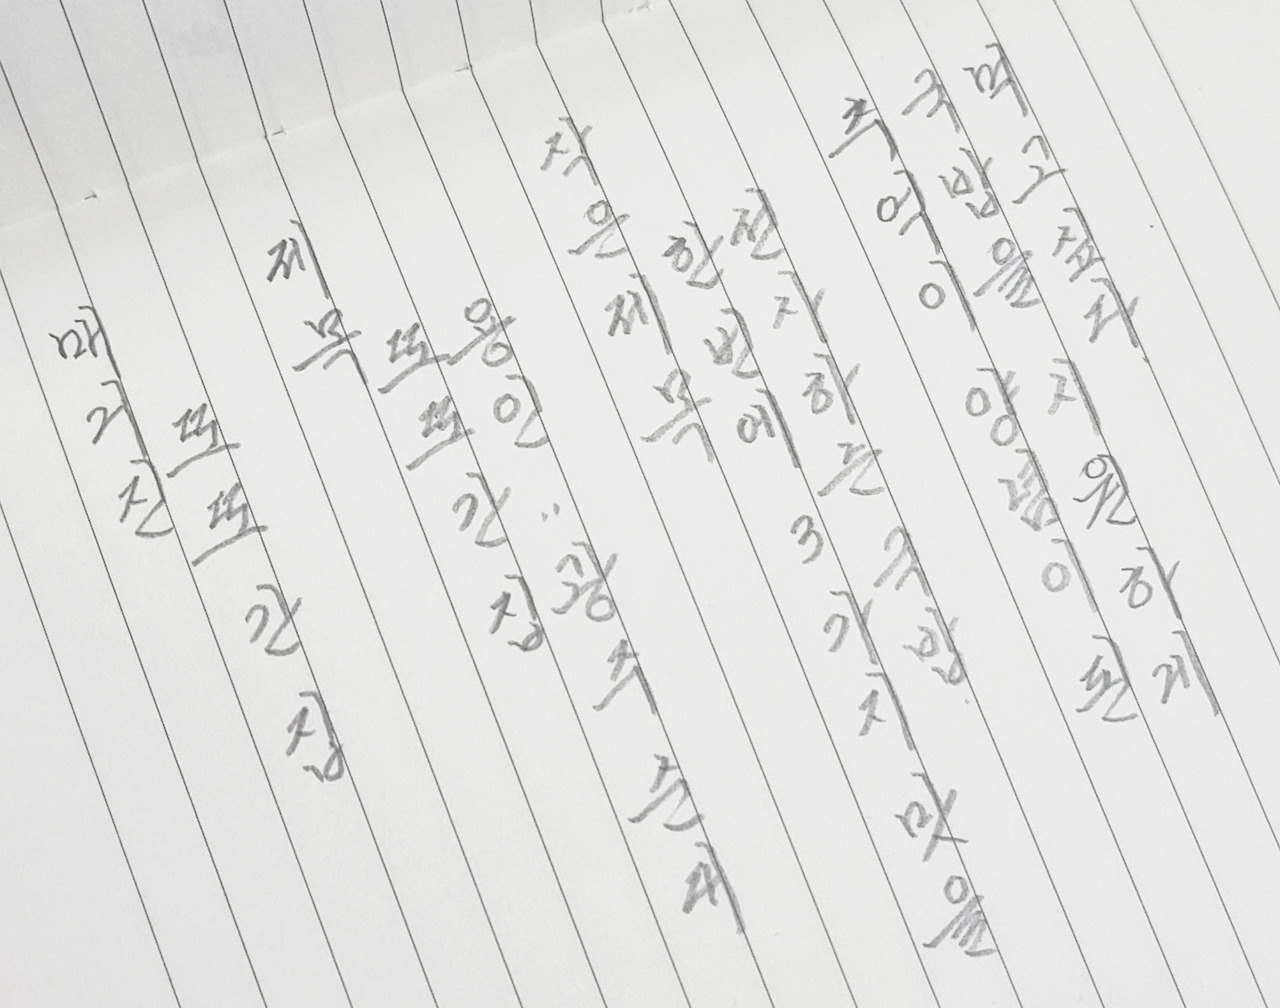 매거진
또또간집
제목
또또간집
용인 : 광주 순대
작은제목
한번에 3가지 맛을
전자하는 국밥.
추억이 양념이 된
국밥을
먹고싶다 시원하게